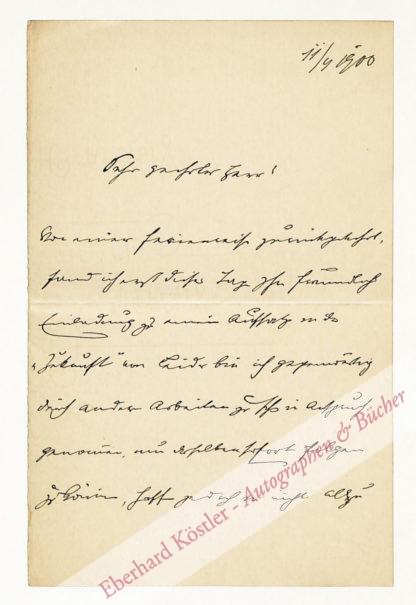 11/9 1900
Sehr geehrter Herr!
Von einer Ferienreise zurückgekehrt,
fand ich erst dieser Tage Ihre freundliche
Einladung zu einem Aufsatz in der
„Zukunft“ vor. Leider bin ich gegenwärtig
durch andere Arbeiten zu sehr in Anspruch
genommen, um derselben sofort folgen
zu können, hoffe jedoch in nicht allzu
Eberhard Köstler - Autographen & Bücher